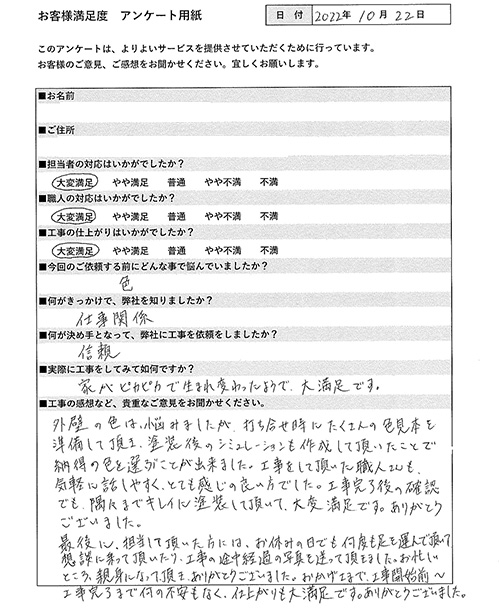 お客様満足度　アンケート用紙
日　付　2022年 10月 22日
このアンケートは、よりよいサービスを提供させていただくために行っています。
お客様のご意見、ご感想をお聞かせください。宜しくお願いします。
■お名前
■ご住所
■担当者の対応はいかがでしたか？
大変満足　やや満足　普通　やや不満　不満
■職人の対応はいかがでしたか？
大変満足　やや満足　普通　やや不満　不満
■工事の仕上がりはいかがでしたか？
大変満足　やや満足　普通　やや不満　不満
■今回のご依頼する前にどんな事で悩んでいましたか？
色
■何がきっかけで、弊社を知りましたか？
仕事関係
■何が決め手となって、弊社に工事を依頼をしましたか？
信頼
■実際に工事をしてみて如何ですか？
家がピカピカで生まれ変わったようで、大満足です。
■工事の感想など、貴重なご意見をお聞かせください。
外壁の色は、悩みましたが、打ち合せ時にたくさんの色見本を
準備して頂き、塗装後のシミュレーションも作成して頂いたことで
納得の色を選ぶことが出来ました。工事をして頂いた職人さんも、
気軽に話しやすく、とても感じの良い方でした。工事完了後の確認
でも、隅々までキレイに塗装して頂いて、大変満足です。ありがとう
ございました。
最後に、担当して頂いた方には、お休みの日でも何度も足を運んで頂き
相談に乗って頂いたり、工事の途中経過の写真を送って頂きました。お忙しい
ところ、親身になって頂き、ありがとうございました。おかげさまで、工事開始前〜
工事完了まで何の不安もなく、仕上がりも大満足です。ありがとうございました。